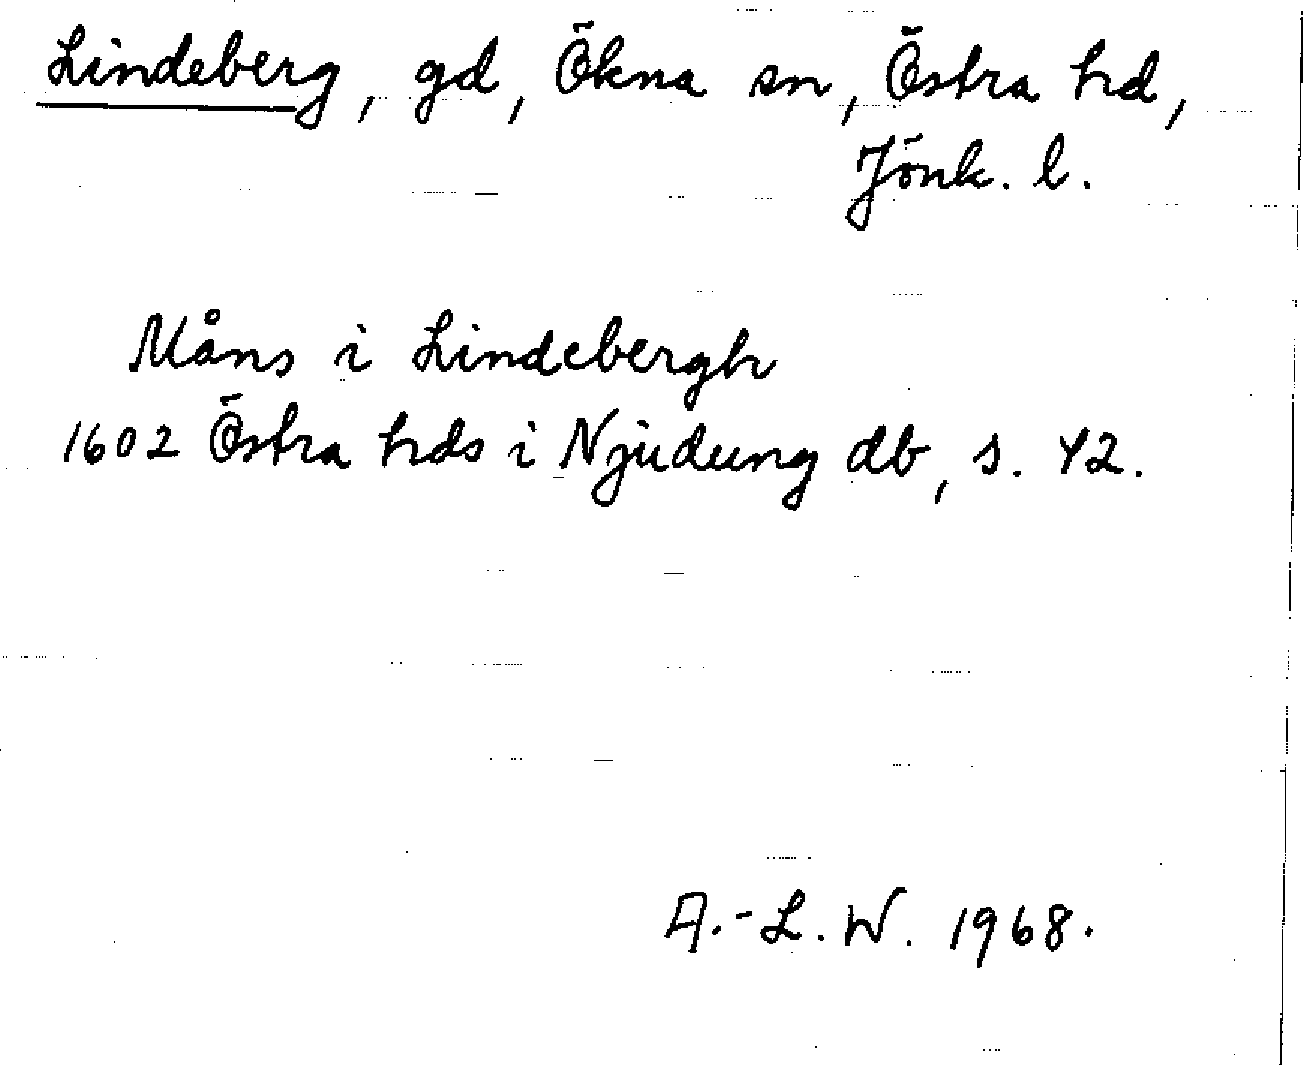 Lindeberg, gd, Ökna sn, Östra hd,
Jönk. l.
Måns i Lindebergh
1602 Östra hds i Njudung db, s. 42.
A.-L. W. 1968.